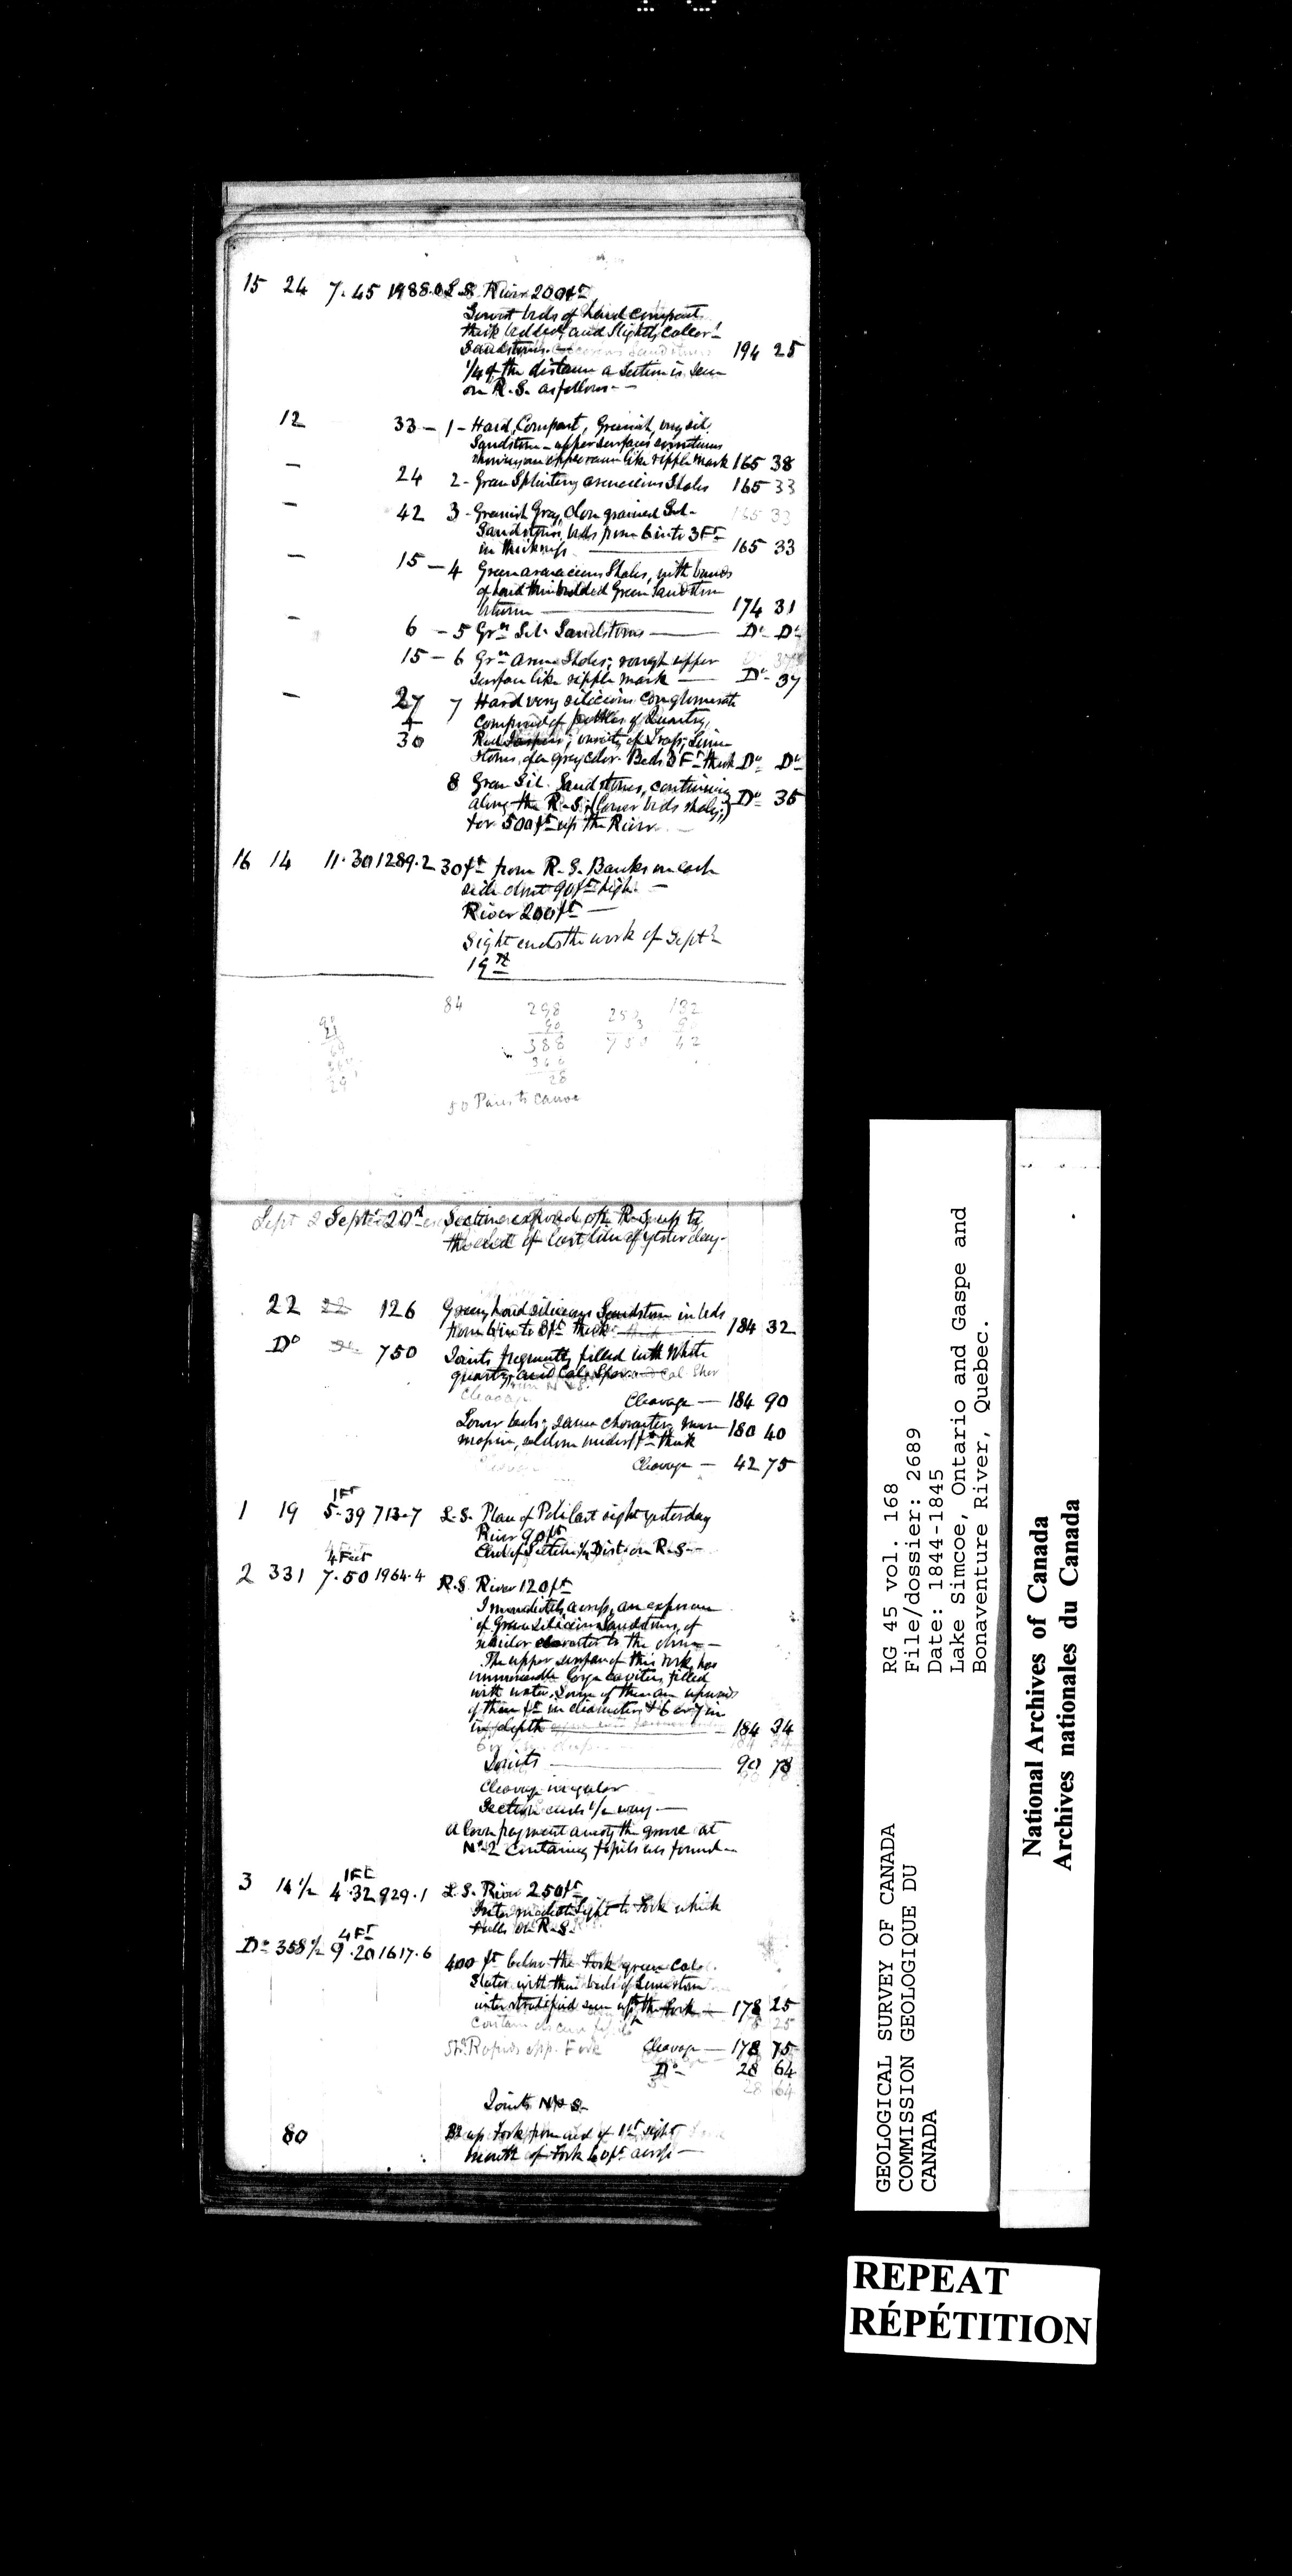 15 24 7.45 1988.0 L.S. River 200 ft
Lowest beds of hard compact
thick bedded and slightly
Sandstones 194 25
1/4 of the distance a Section is seen
on R.S. as follows -
12 33 - 1 - Hard, Compact, Greenish, very sil.
Sandstone - upper surfaces sometimes
showing an appearance like ripple mark 165 38
- 24 2 - Green Splintery arenacious Shales 165 33
- 42 3 - Greenish Gray, close grained Sil- 165 33
Sandstones, beds from 6 in to 3 Ft
in thickness 165 33
- 15 - 4 Green arenaceous Shales, with bands
of hard thin bedded Green Sandstone
between 174 31
- 6 - 5 Grn Sil. Sandstones Do Do
15 - 6 Grn Arena Shales; rough upper
Surface like ripple mark Do 37
- 27 7 Hard very silicious Conglomerate
composed of pebbles of Quartz,
30 Red ; variety of Trap; Lime-
stones, of a grey color. Beds 3 Ft thick Do Do
8 Green Sil. Sandstones, continuing Do 35
along the R.S. (Lower beds shaly,)
for 500 ft up the River
16 14 11.30 1289.2 30 ft from R.S. Banks on each
side about 90 ft high -
River 200 ft -
Sight ends the work of Septr
19th
84 298 250 132
90 3 90
388 750 42
28
50 Paces to Canoe
Septr 20th Section exposed on R.S. up to
the end of last line of yesterday.
22 22 126 Green, hard silicious Sandstone in beds
from 6 in to 3 ft thick 184 32
Do 750 Joints frequently filled with White
quartz, and Calc. Spar.
Cleavage - 184 90
Lower beds, same character, more 180 40
massive, seldom under 1 ft thick
Cleavage - 42 75
1 Ft
1 19 5.39 713.7 L.S. Place of Pole last sight yesterday
River 90 ft
End of Section 1/2 Dist. on R.S. -
4 Feet
2 331 7.50 1964.4 R.S. River 120 ft
Immediately across, an exposure
of Green Silicious Sandstones, of
similar character to the above -
The upper surface of this rock, has
innumerable large cavities, filled
with water, Some of them are upwards
of three ft in diameter, & 6 or 7 in
in depth 184 34
Joints 90 78
Cleavage irregular
Section ends 1/2 way -
A loose fragment among the gravel at
No 2 Containing fossils was found -
1 Ft
3 14 1/2 4.32 929.1 L.S. River 250 ft
Intermediate Sight to Fork which
falls on R.S.
4 Ft
Do 358 1/2 9.20 1617.6 400 ft below the Fork green Calc.
Slates with thin beds of Limestone
interstratified seen up to the Fork - 178 25
Rapids opp. Fork Cleavage - 178 75
Do 28 64
Joints N & S -
80 up Fork from end of 1st sight
mouth of Fork 60 ft across -
GEOLOGICAL SURVEY OF CANADA
COMMISSION GEOLOGIQUE DU
CANADA
RG 45 vol. 168
File/dossier: 2689
Date: 1844-1845
Lake Simcoe, Ontario and Gaspe and
Bonaventure River, Quebec.
National Archives of Canada
Archives nationales du Canada
REPEAT
RÉPÉTITION